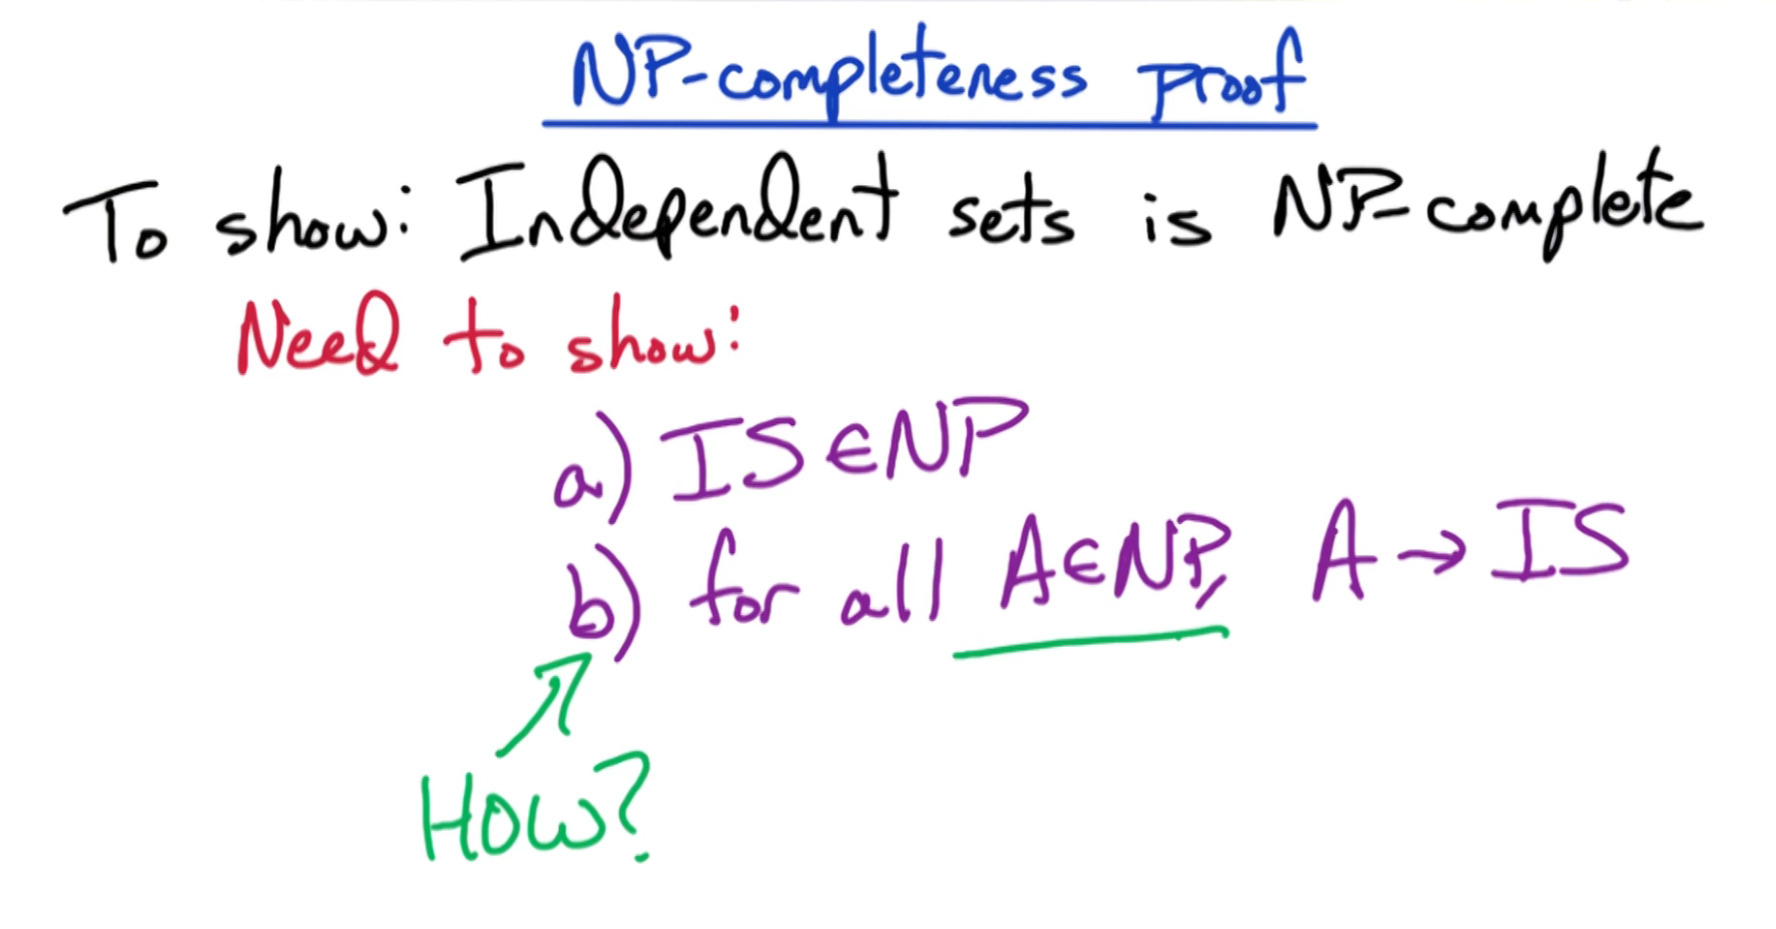 NP-completeness proof
To show: Independent sets is NP-complete
Need to show:
a) IS ∈ NP
b) for all A ∈ NP, A → IS
How?